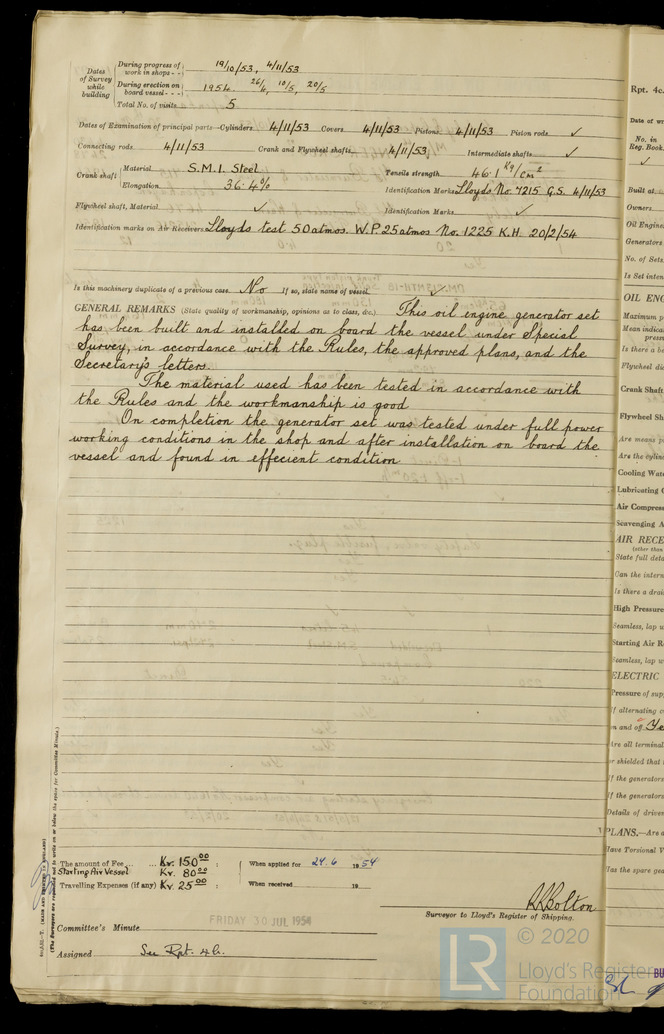 Dates of Survey while building
During progress of work in shops - - 19/10/53, 4/11/53
During erection on board vessel - - - 1954. 26/4, 10/5, 20/5
Total No. of visits 5
Dates of Examination of principal parts—Cylinders 4/11/53 Covers 4/11/53 Pistons 4/11/53 Piston rods ✓
Connecting rods 4/11/53 Crank and Flywheel shafts 4/11/53 Intermediate shafts ✓
Crank shaft Material S.M.I. Steel Tensile strength 46·1 Kg/cm²
Elongation 36·4% Identification Marks Lloyds No. 7215 G.S. 4/11/53
Flywheel shaft, Material ✓ Identification Marks ✓
Identification marks on Air Receivers Lloyds test 50 atmos. W.P. 25 atmos No. 1225 K.H. 20/2/54
Is this machinery duplicate of a previous case. No If so, state name of vessel ✓
GENERAL REMARKS (State quality of workmanship, opinions as to class, &c.) This oil engine generator set
has been built and installed on board the vessel under Special
Survey, in accordance with the Rules, the approved plans, and the
Secretary's letters.
The material used has been tested in accordance with
the Rules and the workmanship is good
On completion the generator set was tested under full power
working conditions in the shop and after installation on board the
vessel and found in effecient condition
(The Surveyors are requested not to write on or below the space for Committee's Minute.)
The amount of Fee ... ... Kr. 150 00 : When applied for 24.6 1954
Starting Air Vessel Kr. 80 00
Travelling Expenses (if any) Kr. 25 00 : When received 19
Bolton
Surveyor to Lloyd's Register of Shipping.
Committee's Minute FRIDAY 30 JUL 1954
Assigned See Rpt. 4b.
© 2020
LR
Lloyd's Register
Foundation
Rpt. 4c.
Date of wr
No. in
Reg. Book.
✓
Built at
Owners
Oil Engine
Generators
No. of Sets
Is Set inten
OIL ENG
Maximum p
Mean indica
press
Is there a be
Flywheel dia
Crank Shaft
Flywheel Sh
Are means p
Are the cylin
Cooling Wate
Lubricating O
Air Compress
Scavenging A
AIR RECE
(other than
State full deta
Can the intern
Is there a drai
High Pressure
Seamless, lap w
Starting Air R
Seamless, lap w
ELECTRIC
Pressure of sup
If alternating c
on and off Ye
Are all terminal
or shielded that i
If the generators
If the generators
Details of driven
PLANS.—Are a
Have Torsional V
Has the spare gea